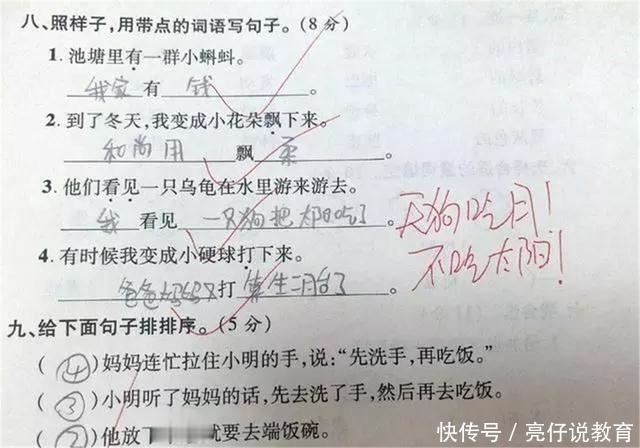 八、照样子，用带点的词语写句子。(8分)
1. 池塘里有一群小蝌蚪。
我家 有 钱 。
2. 到了冬天，我变成小花朵飘下来。
和尚用 飘柔 。
3. 他们看见一只乌龟在水里游来游去。
我 看见 一只狗把太阳吃了 。
天狗吃月！
不吃太阳！
4. 有时候我变成小硬球打下来。
爸爸妈妈又打 算生二月台了 。
九、给下面句子排排序。(5分)
(④)妈妈连忙拉住小明的手，说：“先洗手，再吃饭。”
(③)小明听了妈妈的话，先去洗了手，然后再去吃饭。
(②)他放下 就要去端饭碗。
快传号 / 亮仔说教育